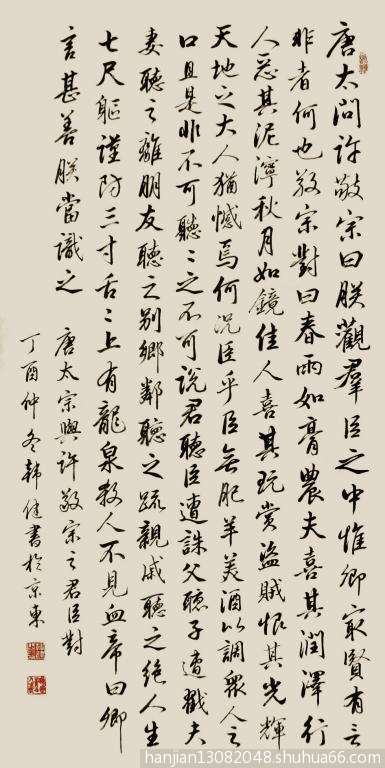 唐太问许敬宗曰朕觀羣臣之中惟卿最賢有言
非者何也敬宗對曰春雨如膏農夫喜其潤澤行
人惡其泥濘秋月如鏡佳人喜其玩賞盜賊恨其光輝
天地之大人猶憾焉何況臣乎臣無肥羊美酒以調衆人之
口且是非不可聽〻之不可說君聽臣遭誅父聽子遭戮夫
妻聽之離朋友聽之别鄉鄰聽之疏親戚聽之絶人生
七尺軀謹防三寸舌〻上有龍泉殺人不見血帝曰卿
言甚善朕當識之
唐太宗與許敬宗之君臣對
丁酉仲冬韩健書於京東
hanjian13082048.shuhua66.com